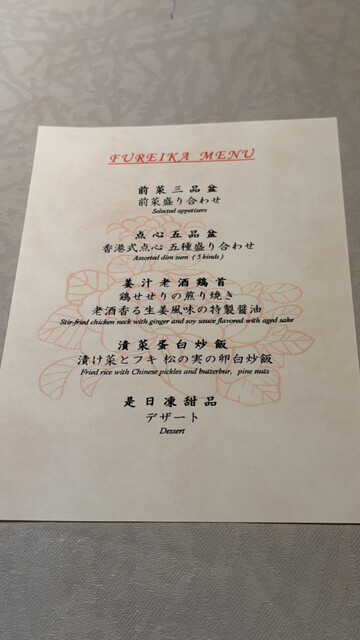 FUREIKA MENU
前菜三品盆
前菜盛り合わせ
Selected appetizers
点心五品盆
香港式点心 五種盛り合わせ
Assorted dim sum ( 5 kinds )
姜汁老酒鶏首
鶏せせりの煎り焼き
老酒香る生姜風味の特製醤油
Stir-fried chicken neck with ginger and soy sauce flavored with aged sake
漬菜蛋白炒飯
漬け菜とフキ 松の実の卵白炒飯
Fried rice with Chinese pickles and butterbur, pine nuts
是日凍甜品
デザート
Dessert